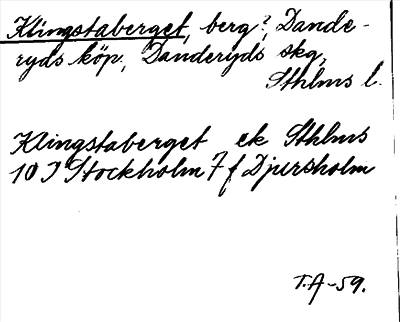 Klingstaberget, berg?, Dande-
ryds köp., Danderyds skg,
Sthlms l.
Klingstaberget ek Sthlms
10 I Stockholm 7 f Djursholm
T.A-59.